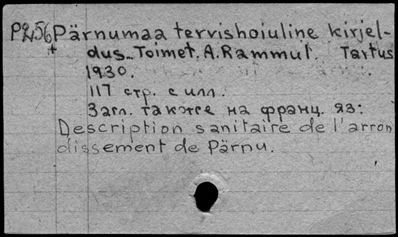 P2,56 Pärnumaa tervishoiuline kirjel-
dus. Toimet. A. Rammul. Tartus
1930.
117 стр. с илл.
Загл. также на франц. яз:
Description sanitaire de l'arron
dissement de Pärnu.